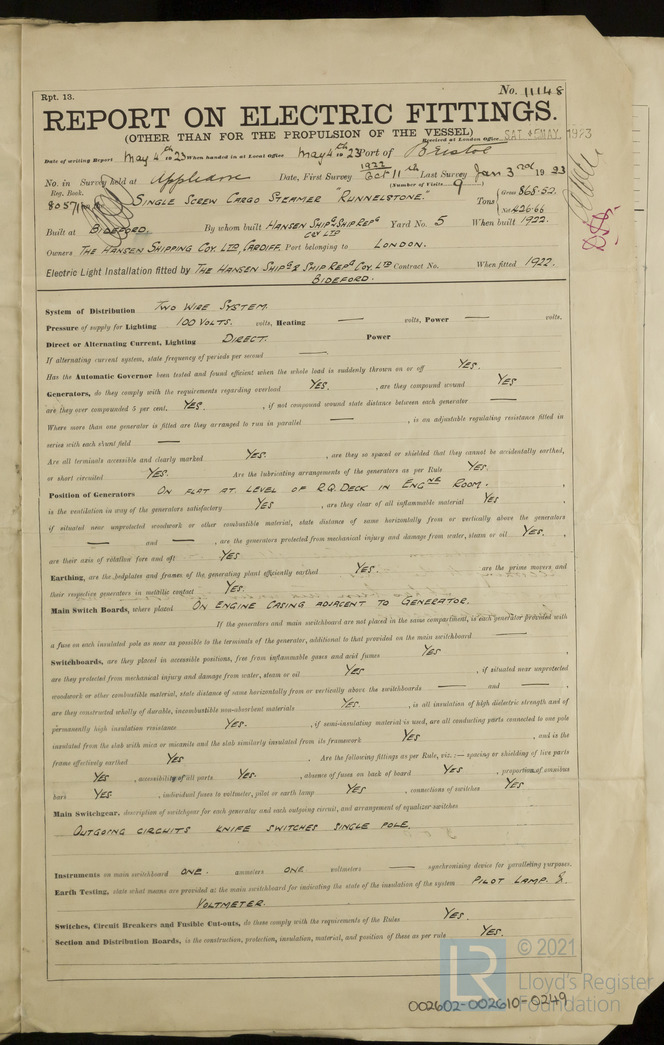 Rpt. 13.
No. 11148
REPORT ON ELECTRIC FITTINGS.
(OTHER THAN FOR THE PROPULSION OF THE VESSEL)
Received at London Office SAT. 5 MAY. 1923
Date of writing Report May 4th 1923 When handed in at Local Office May 4th 1923 Port of Bristol
No. in Survey held at Appledore Date, First Survey Oct 11th 1922 Last Survey Jan 3rd 1923
Reg. Book. (Number of Visits 9
80571 Single Screw Cargo Steamer "Runnelstone." Tons { Gross 868.52.
Net 426.66
Built at Bideford. By whom built Hansen Shipg & Ship Repg Coy Ltd Yard No. 5 When built 1922.
Owners The Hansen Shipping Coy. Ltd, Cardiff. Port belonging to London.
Electric Light Installation fitted by The Hansen Shipg & Ship Repg Coy. Ltd Bideford. Contract No. When fitted 1922.
System of Distribution Two Wire System.
Pressure of supply for Lighting 100 Volts. volts, Heating — volts, Power — volts.
Direct or Alternating Current, Lighting Direct. Power
If alternating current system, state frequency of periods per second —
Has the Automatic Governor been tested and found efficient when the whole load is suddenly thrown on or off Yes.
Generators, do they comply with the requirements regarding overload Yes. , are they compound wound Yes
are they over compounded 5 per cent. Yes. , if not compound wound state distance between each generator —
Where more than one generator is fitted are they arranged to run in parallel — , is an adjustable regulating resistance fitted in
series with each shunt field —
Are all terminals accessible and clearly marked Yes. , are they so spaced or shielded that they cannot be accidentally earthed,
or short circuited Yes. Are the lubricating arrangements of the generators as per Rule Yes.
Position of Generators On flat at level of R.Q. Deck in Engne Room. ,
is the ventilation in way of the generators satisfactory Yes , are they clear of all inflammable material Yes ,
if situated near unprotected woodwork or other combustible material, state distance of same horizontally from or vertically above the generators
— and — , are the generators protected from mechanical injury and damage from water, steam or oil Yes. ,
are their axis of rotation fore and aft Yes
Earthing, are the bedplates and frames of the generating plant efficiently earthed Yes. are the prime movers and
their respective generators in metallic contact Yes.
Main Switch Boards, where placed On Engine Casing adjacent to Generator.
If the generators and main switchboard are not placed in the same compartment, is each generator provided with
a fuse on each insulated pole as near as possible to the terminals of the generator, additional to that provided on the main switchboard —
Switchboards, are they placed in accessible positions, free from inflammable gases and acid fumes Yes ,
are they protected from mechanical injury and damage from water, steam or oil Yes , if situated near unprotected
woodwork or other combustible material, state distance of same horizontally from or vertically above the switchboards — and — ,
are they constructed wholly of durable, incombustible non-absorbent materials Yes. , is all insulation of high dielectric strength and of
permanently high insulation resistance Yes. , if semi-insulating material is used, are all conducting parts connected to one pole
insulated from the slab with mica or micanite and the slab similarly insulated from its framework Yes , and is the
frame effectively earthed Yes . Are the following fittings as per Rule, viz.:— spacing or shielding of live parts
Yes , accessibility of all parts Yes. , absence of fuses on back of board Yes , proportion of omnibus
bars Yes , individual fuses to voltmeter, pilot or earth lamp Yes , connections of switches Yes
Main Switchgear, description of switchgear for each generator and each outgoing circuit, and arrangement of equalizer switches
Outgoing circuits knife switches single pole.
Instruments on main switchboard one. ammeters one voltmeters — synchronizing device for paralleling purposes.
Earth Testing, state what means are provided at the main switchboard for indicating the state of the insulation of the system Pilot Lamp. &
Voltmeter.
Switches, Circuit Breakers and Fusible Cut-outs, do these comply with the requirements of the Rules Yes.
Section and Distribution Boards, is the construction, protection, insulation, material, and position of these as per rule Yes.
LR
© 2021
Lloyd's Register
Foundation
002602-002610-0249